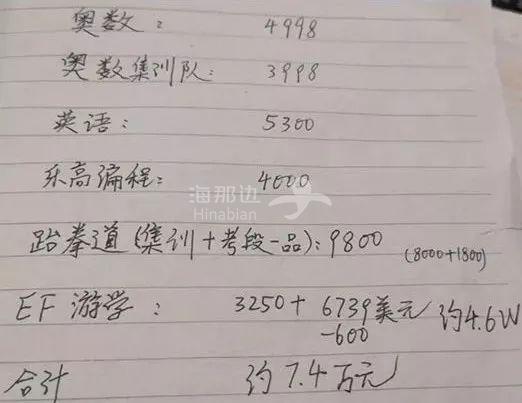 奥数： 4998
奥数集训队： 3998
英语： 5300
乐高编程： 4000
海那边
Hinabian
跆拳道(集训+考段一品)： 9800 (8000+1800)
EF 游学： 3250+ 6739美元 约4.6W
-600
合计 约7.4万元